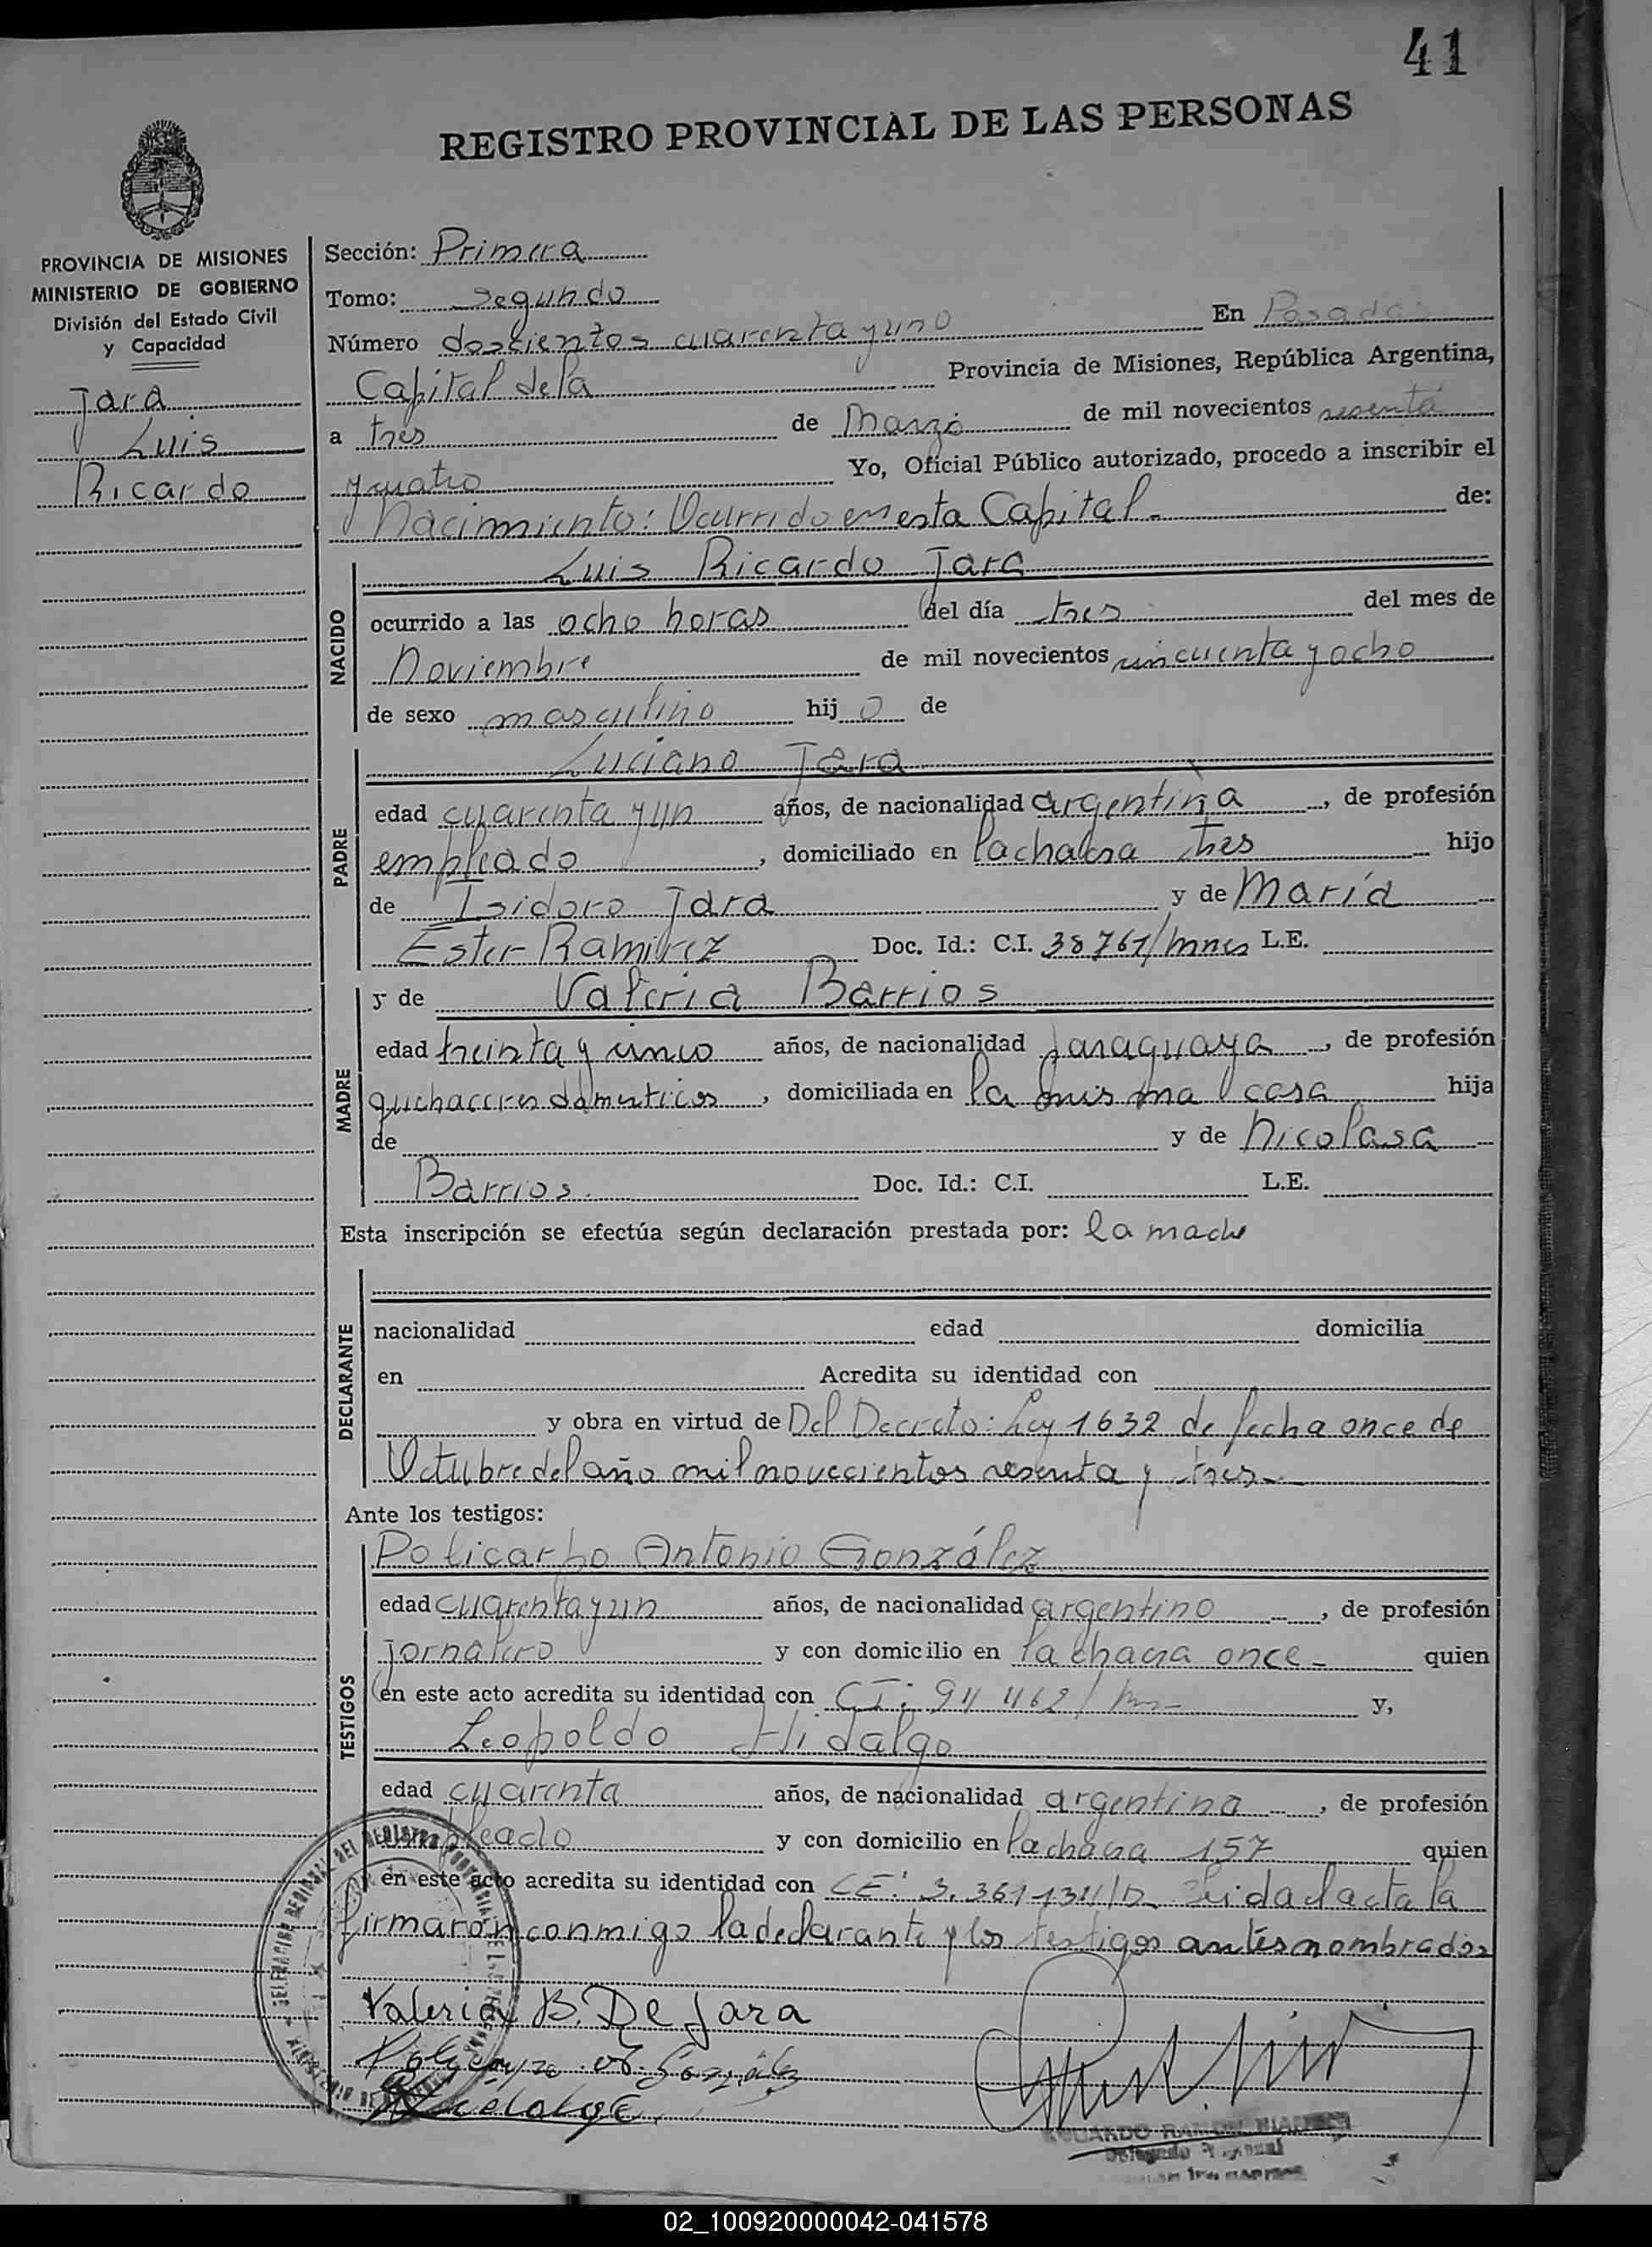 41
REGISTRO PROVINCIAL DE LAS PERSONAS
PROVINCIA DE MISIONES
MINISTERIO DE GOBIERNO
División del Estado Civil
y Capacidad
Jara
Luis
Ricardo
Sección: Primera
Tomo: Segundo
Número doscientos cuarenta y uno En Posadas
Capital de la Provincia de Misiones, República Argentina,
a tres de Marzo de mil novecientos sesenta
y cuatro Yo, Oficial Público autorizado, procedo a inscribir el
Nacimiento: Ocurrido en esta Capital - de:
NACIDO
Luis Ricardo Jara
ocurrido a las ocho horas del día tres del mes de
Noviembre de mil novecientos cincuenta y ocho
de sexo masculino hijo de
PADRE
Luciano Jara
edad cuarenta y un años, de nacionalidad argentina, de profesión
empleado, domiciliado en la chacra tres hijo
de Isidoro Jara y de María
Ester Ramirez Doc. Id.: C.I. 38761/Mnes L.E.
MADRE
y de Valeria Barrios
edad treinta y cinco años, de nacionalidad paraguaya, de profesión
quehaceres domesticos, domiciliada en la misma casa hija
de y de Nicolasa
Barrios. Doc. Id.: C.I. L.E.
Esta inscripción se efectúa según declaración prestada por: la madre
DECLARANTE
nacionalidad edad domicilia
en Acredita su identidad con
y obra en virtud de Del Decreto: Ley 1632 de fecha once de
Octubre del año mil novecientos sesenta y tres-
Ante los testigos:
TESTIGOS
Policarpo Antonio González
edad cuarenta y un años, de nacionalidad argentino, de profesión
jornalero y con domicilio en la chacra once - quien
en este acto acredita su identidad con y,
Leopoldo Hidalgo
edad cuarenta años, de nacionalidad argentina, de profesión
empleado y con domicilio en la chacra 157 quien
en este acto acredita su identidad con Leida el acta la
firmaron conmigo la declarante y los testigos antes nombrados
Valeria B. De Jara
Delegado
02_100920000042-041578